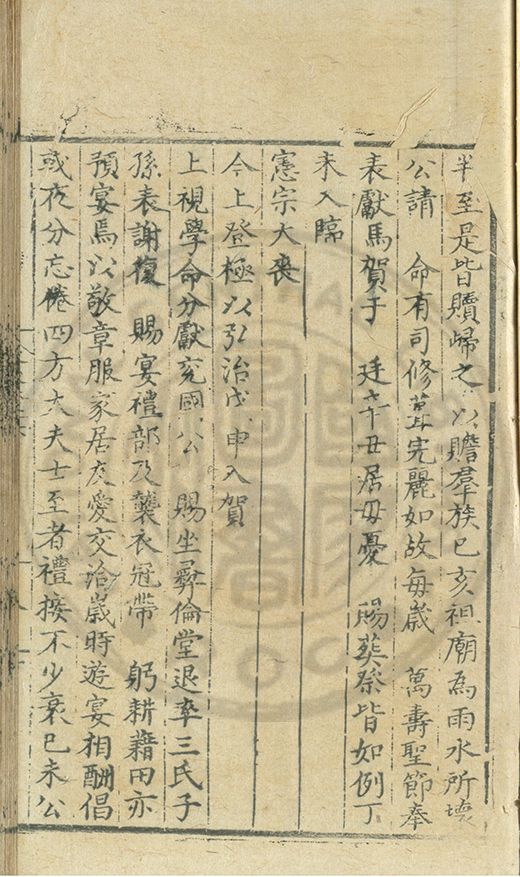 半至是皆贖歸之以贍羣族己亥祖廟為雨水所壞
公請　命有司修葺完麗如故每歲　萬壽聖節奉
表獻馬賀于　廷辛丑居母憂　賜葬祭皆如例丁
未入臨
憲宗大喪
今上登極以弘治戊申入賀
上視學命分獻兖國公　賜坐彞倫堂退率三氏子
孫表謝復　賜宴禮部及襲衣冠帶　躬耕籍田亦
預宴焉以敬章服家居友愛交洽歲時遊宴相酬倡
或夜分忘倦四方大夫士至者禮接不少衰己未公